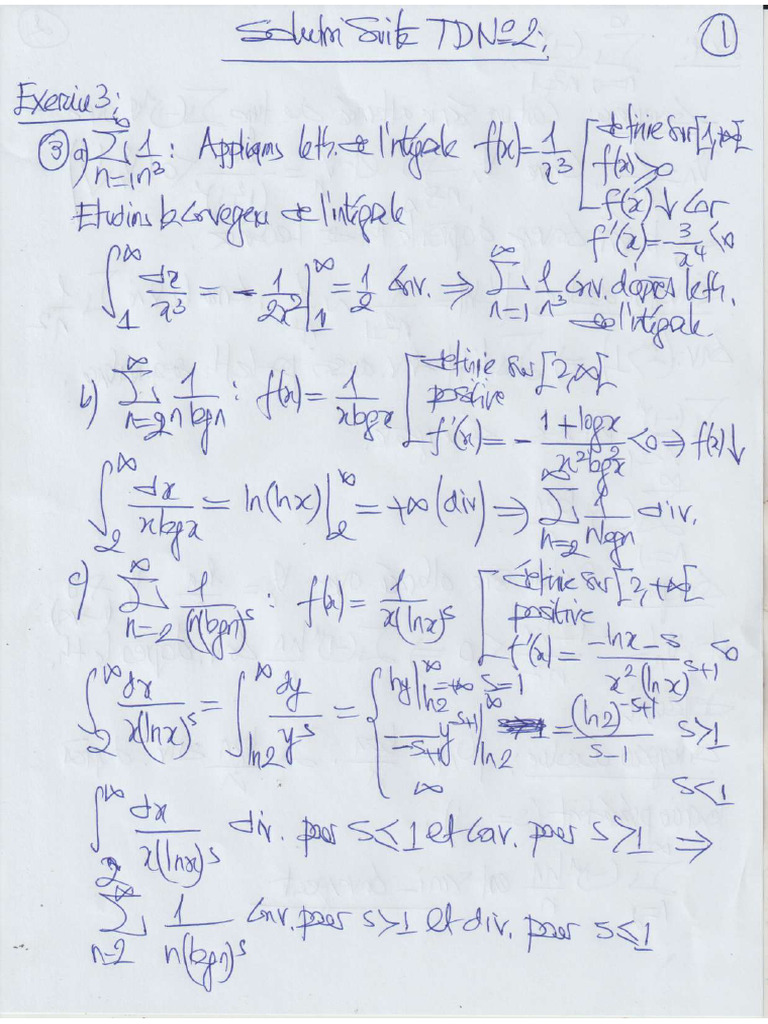 Solution Suite TDN°2: ①
Exercice 3:
③ a) ∑_{n=1}^{∞} 1/n³ : Appliquons le th. de l'intégrale f(x) = 1/x³ [ définie sur [1, +∞[
f(x) ≥ 0
f(x) ↓ car
f'(x) = -3/x⁴ < 0
Etudions la convergence de l'intégrale
∫_1^∞ dx/x³ = -1/2x² |_1^∞ = 1/2 Conv. ⇒ ∑_{n=1}^{∞} 1/n³ Conv. d'après le th. de l'intégrale.
b) ∑_{n=2}^{∞} 1/(n log n) : f(x) = 1/(x log x) [ définie sur [2, ∞[
positive
f'(x) = - (1 + log x)/(x² log² x) < 0 ⇒ f(x) ↓
∫_2^∞ dx/(x log x) = ln(ln x) |_2^∞ = +∞ (div) ⇒ ∑_{n=2}^{∞} 1/(n log n) div.
c) ∑_{n=2}^{∞} 1/(n(log n)^s) : f(x) = 1/(x(ln x)^s) [ définie sur [2, +∞[
positive
f'(x) = (-ln x - s)/(x² (ln x)^{s+1}) < 0
∫_2^∞ dx/(x(ln x)^s) = ∫_{ln 2}^∞ dy/y^s = { ln y |_{ln 2}^∞ = +∞ s = 1
y^{-s+1}/(-s+1) |_{ln 2}^∞ = (ln 2)^{-s+1}/(s-1) s > 1
∞ s < 1
∫_2^∞ dx/(x(ln x)^s) div. pour s ≤ 1 et Conv. pour s > 1 ⇒
∑_{n=2}^{∞} 1/(n(log n)^s) Conv. pour s > 1 et div. pour s ≤ 1